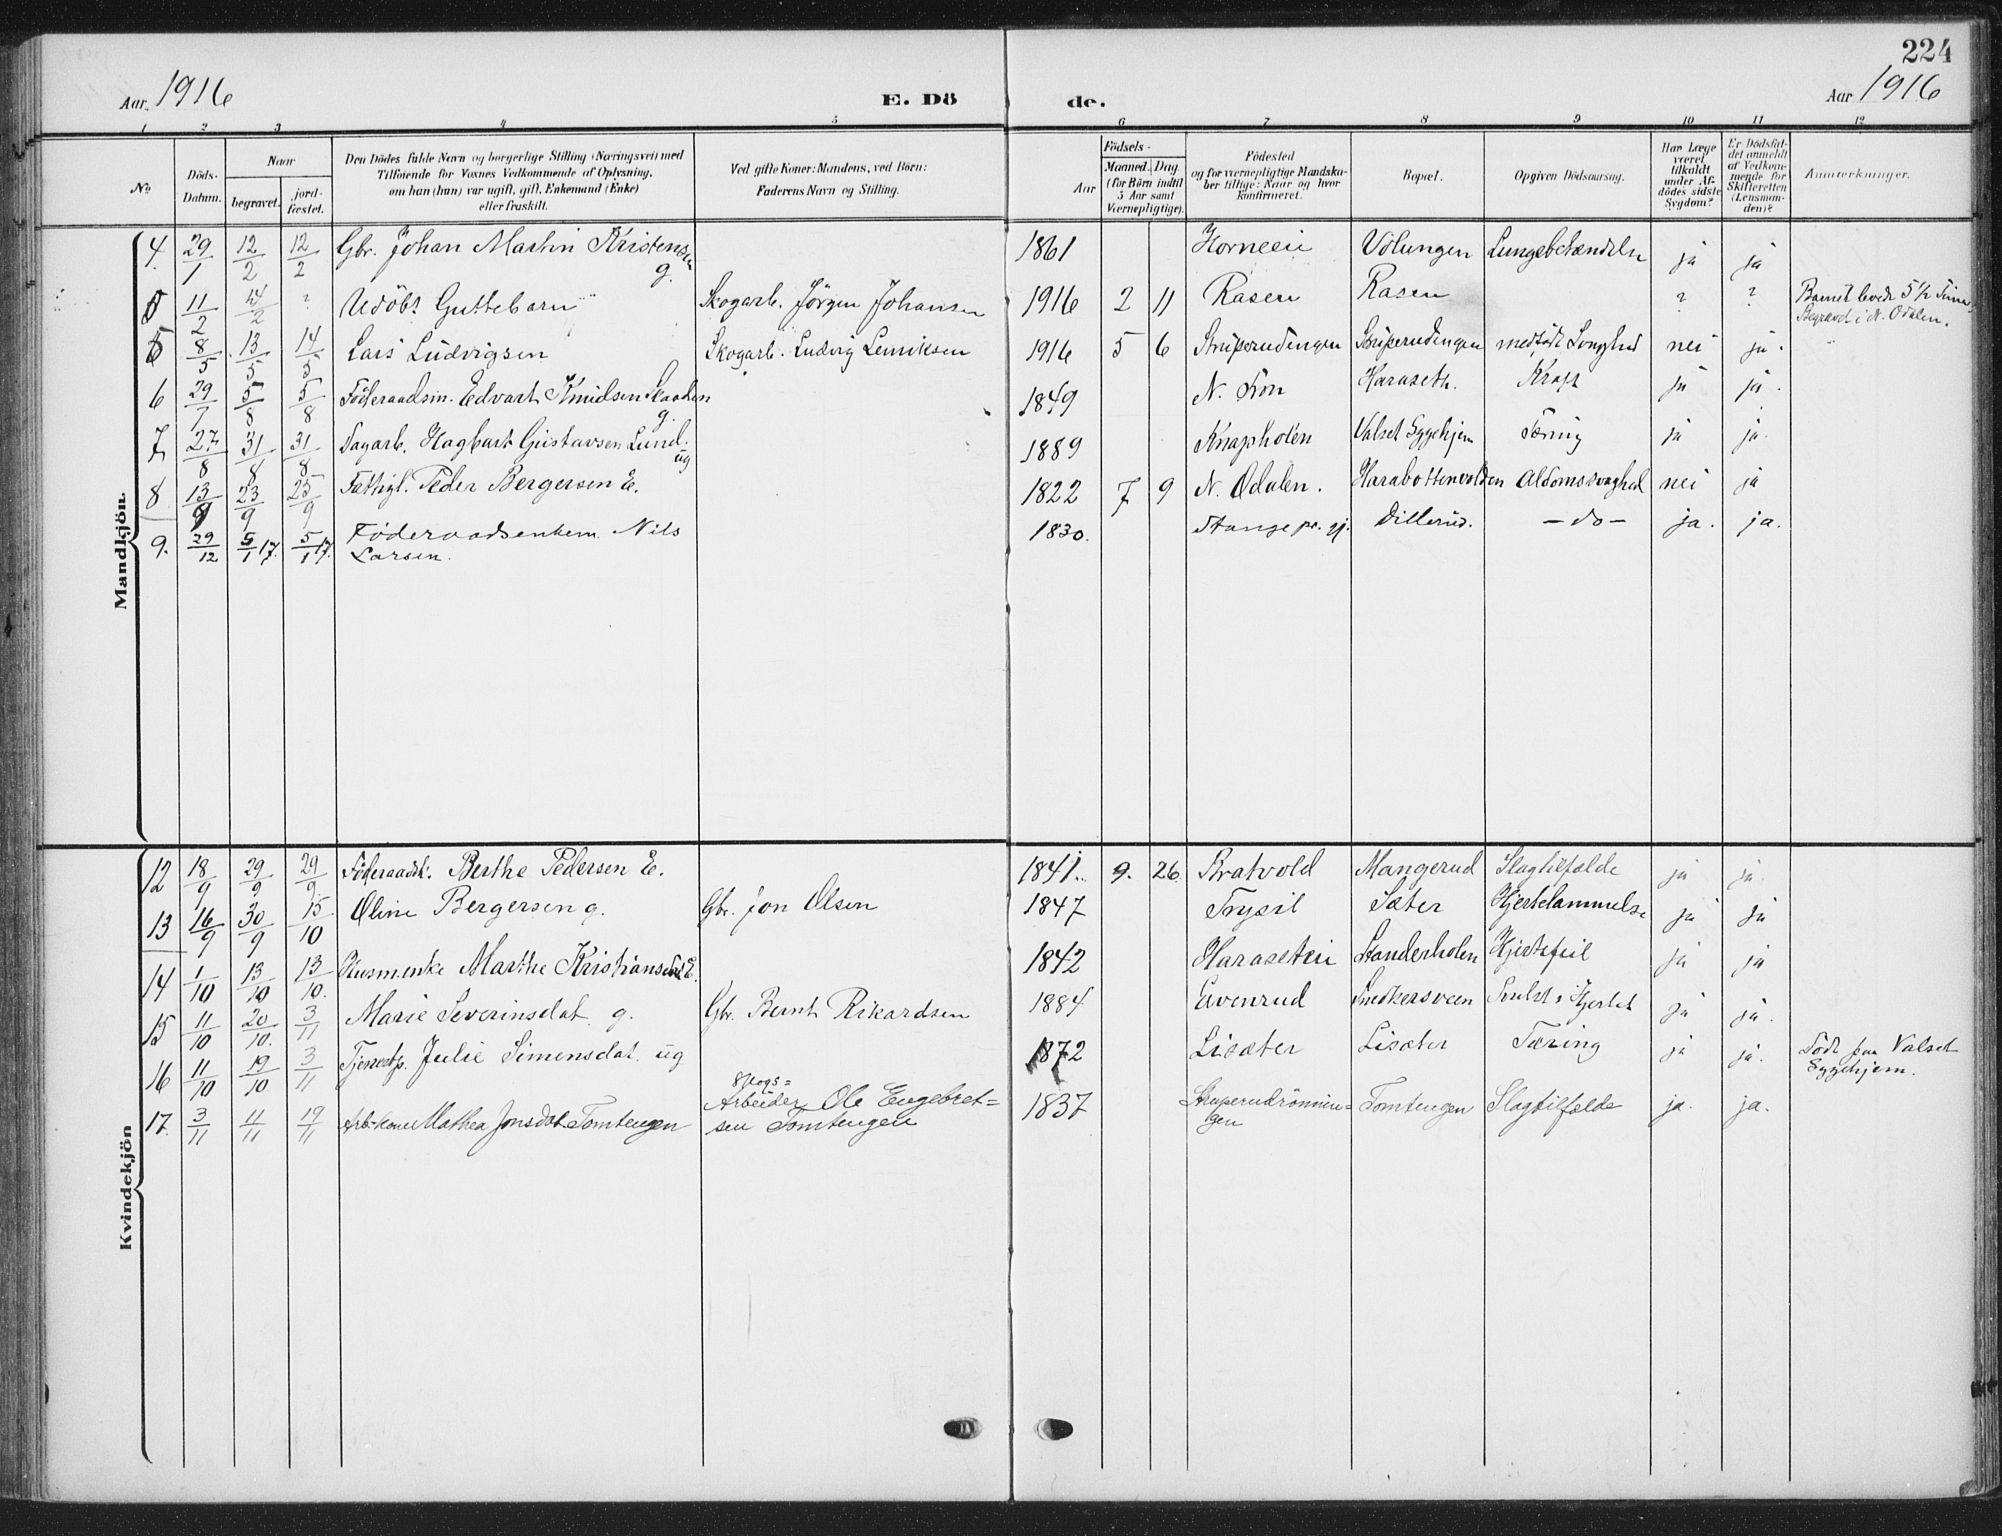 224
Aar 1916
E. Dö
de.
Aar 1916
1 2 3 4 5 6 7 8 9 10 11 12
No
Döds-
Datum.
Naar
begravet.
jord-
fæstet.
Den Dödes fulde Navn og borgerlige Stilling (Næringsvei) med
Tilföiende for Voxnes Vedkommende af Oplysning,
om han (hun) var ugift, gift, Enkemand (Enke)
eller fraskilt.
Ved gifte Koner: Mandens, ved Börn:
Faderens Navn og Stilling.
Födsels-
Aar
Maaned. Dag.
(for Börn indtil
5 Aar samt
Værnepligtige).
Födested
og for værnepligtige Mandska-
ber tillige: Naar og hvor
konfirmeret.
Bopæl.
Opgiven Dödsaarsag.
Har Læge
været
tilkaldt
under Af-
dödes sidste
Sygdom?
Er Dödsfal-
det anmeldt
af Vedkom-
mende for
Skifteretten
(Lensman-
den)?
Anmærkninger.
Mandkjön.
4. 29/1 12/2 12/2 Gbr. Johan Martin Kristensen g. 1861 Horneeie Volungen Lungebetændelse ja ja
5 11/2 24/2 ? Udöbt Guttebarn Skogarb. Jörgen Johansen 1916 2 11 Rasen Rasen ? ? Barnet levede 5 1/2 Time,
Begravet i N. Odalen.
8/5 13/5 14/5 Lars Ludvigsen Skogarb. Ludvig Lenriksen 1916 5 6 medfödt nei ja.
6 29/7 5/8 5/8 Föderaadsm. Edvart Knudsen g. 1849 N. Haraseth. Kræft ja ja.
7 27/8 31/8 31/8 Dagarb. Hagbart Gustavsen Lund. ug 1889 Knapholen Valset Sygehjem Tæring ja ja.
8 13/9 23/9 25/9 Fattigl. Peder Bergersen E. 1822 7 9 N. Odalen. Harabottenvolden Aldomssvaghed nei ja
9. 29/12 5/1 17. 5/1 17. Föderaadsenkem. Nils
Larsen. 1830. Stange pr. gj. Dillerud. – do – ja. ja.
Kvindekjön
12 18/9 29/9 29/9 Föderaadsk. Berthe Pedersen E. 1841. 9. 26 Bratvold Mangerud Slagtilfælde ja ja.
13 16/9 30/9 15/10 Oline Bergersen g. Gbr. Jon Olsen 1847 Trysil Sæter Hjertelammelse ja ja
14 1/10 13/10 13/10. Husmenke Marthe Kristiansen E. 1842 Haraseteie Standerholen Hjertefeil ja ja
15 11/10 20/10. 3/11 Marie Severinsdat. g. Gbr. Bernt Rikardsen 1884 Evenrud Smedkersveen ja ja.
16 11/10 19/10 3/11 Tjenestp. Julie Simensdat. ug 1872 Lisæter Lisæter Tæring ja ja. Död paa Valset
Sygehjem.
17. 3/11 11/11 19/11 Arb.kone Mathea Jonsdat. Tomtengen Skogs=
Arbeider Ole Engebret=
sen Tomtengen 1837 Struperudrönnin=
gen Tomtengen Slagtilfælde ja. ja.